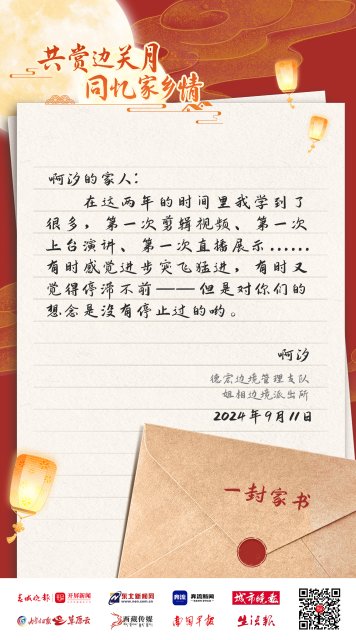 共赏边关月
同忆家乡情
啊汐的家人：
在这两年的时间里我学到了
很多，第一次剪辑视频、第一次
上台演讲、第一次直播展示……
有时感觉进步突飞猛进，有时又
觉得停滞不前——但是对你们的
想念是没有停止过的哟。
啊汐
德宏边境管理支队
姐相边境派出所
2024年9月11日
一封家书
春城晚报 开屏新闻 东北新闻网 奔流 奔流新闻 城市晚报
草原云 西藏传媒 南国早报 生活报